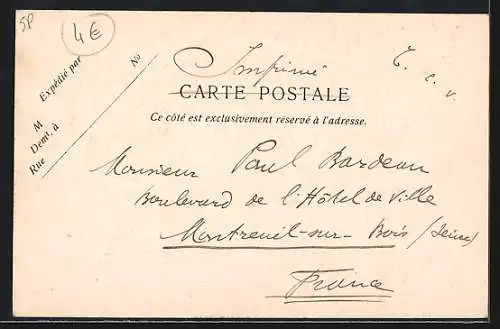 SP
4€
Expédié par
M
Demt. à
Rue
No
Imprimé
T. c. v.
CARTE POSTALE
Ce côté est exclusivement réservé à l'adresse.
Monsieur Paul Bardeau
Boulevard de l'Hôtel de Ville
Montreuil-sur-Bois (Seine)
France